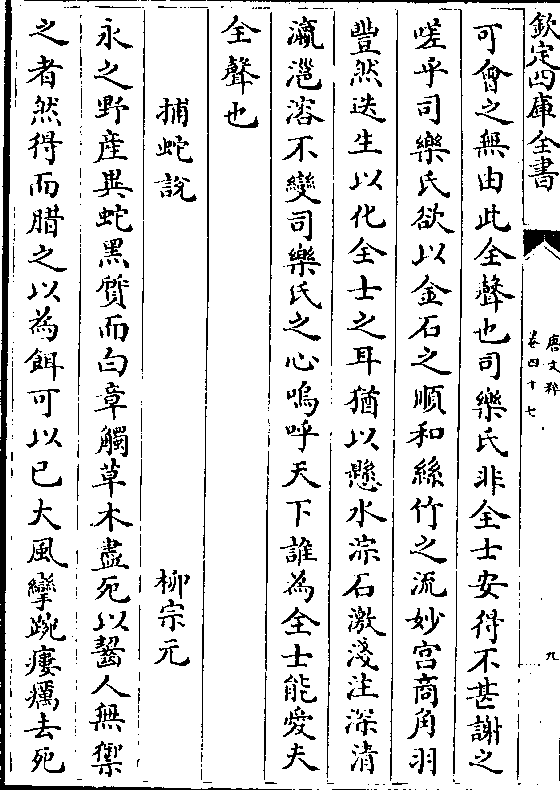 欽定四庫全書
唐文粹
卷四十七
九
可會之無由此全聲也司樂氏非全士安得不甚謝之
嗟乎司樂氏欲以金石之順和絲竹之流妙宫商角羽
豐然迭生以化全士之耳猶以懸水淙石激淺注深清
瀛灉溶不變司樂氏之心嗚呼天下誰為全士能愛夫
全聲也
捕蛇說
柳宗元
永之野産異蛇黑質而白章觸草木盡死以齧人無禦
之者然得而腊之以為餌可以已大風攣踠瘻癘去死